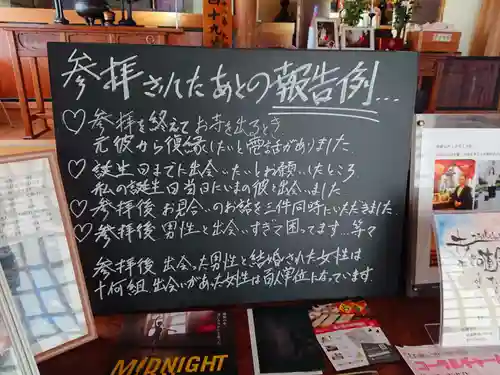 参拝されたあとの報告例...
♡参拝を終えてお寺を出るとき
元彼から復縁したいと電話がありました.
♡誕生日までに出会いたいとお願いしたところ
私の誕生日当日にいまの彼と出会いました
♡参拝後 お見合いのお話を三件同時にいただきました.
♡参拝後 男性と出会いすぎて困ってます...等々
参拝後 出会った男性と結婚された女性は
十何組.出会いがあった女性は百人単位になっています.
MIDNIGHT